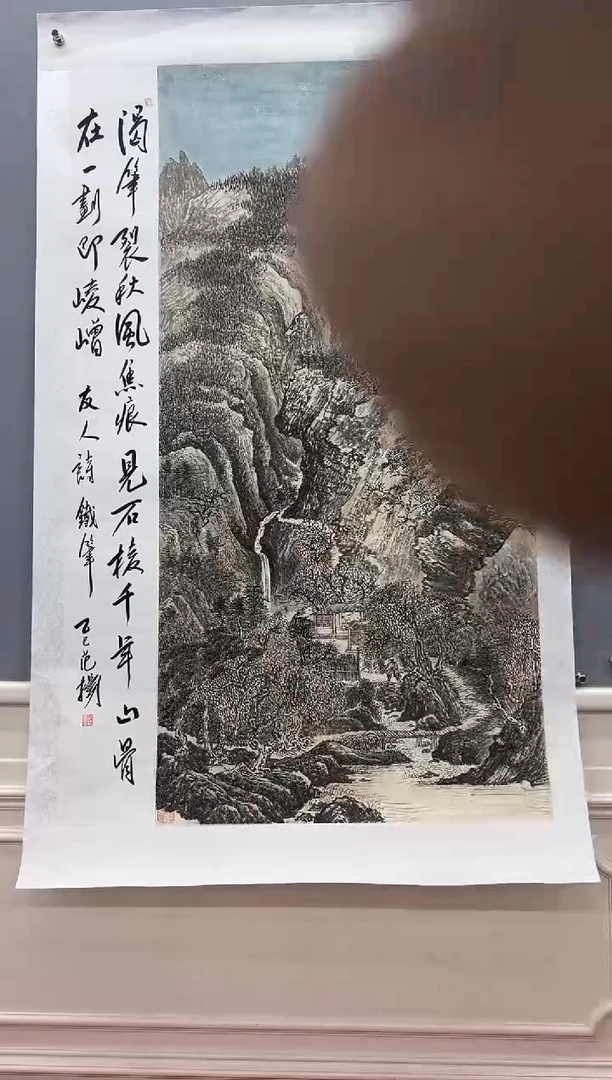 渴筆裂秋風焦痕見石棱千年山骨
在一劃即崚嶒 友人詩 鐵筆 乙巳 范